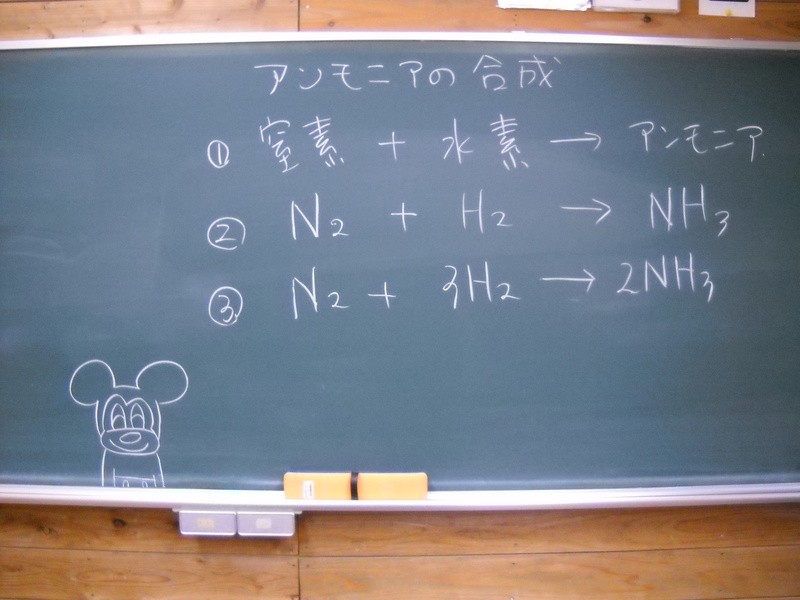 アンモニアの合成
① 窒素 + 水素 → アンモニア
② N₂ + H₂ → NH₃
③ N₂ + 3H₂ → 2NH₃